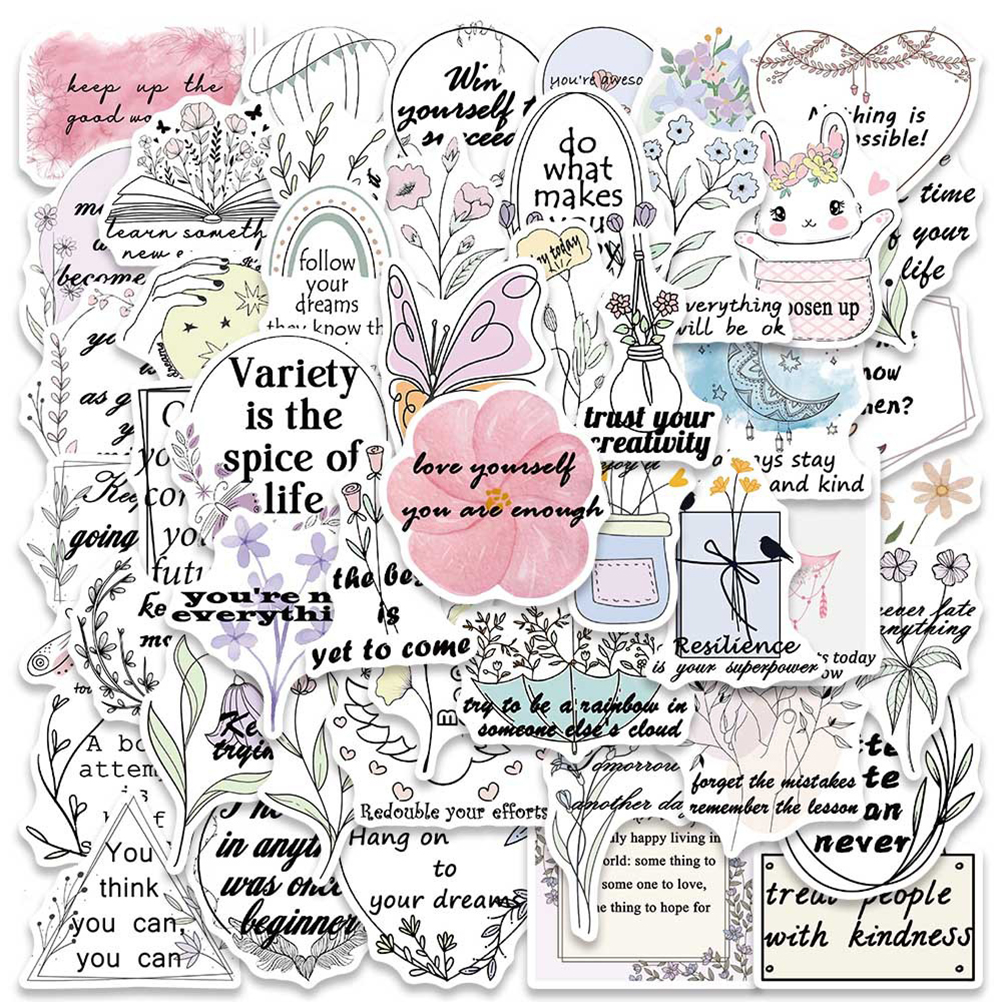 keep up the
good wo
Win
yourself t
succeed
you're aweso
do
what
makes
you
Nothing is
ossible!
time
your
life
learn someth
new
become
follow
your
dreams
they know th
ry today
everything
will be ok
oosen up
Variety
is the
spice of
life
trust your
creativity
enjoy it
now
hen?
ays stay
and kind
love yourself
you are enough
as g
Kee
going
you're n
everythi
the bes
is
yet to come
Resilience
is your superpower
ts today
ow
never late
anything
try to be a rainbow in
someone else's cloud
Ke
tryin
A bo
attem
is
Redouble your efforts
omorrow
another da
forget the mistakes
remember the lesson
tte
te
an
never
You
think
you can,
you can
in anyt
was once
beginner
Hang on
to
your dreams
ly happy living in
orld: some thing to
some one to love,
e thing to hope for
treat people
with kindness